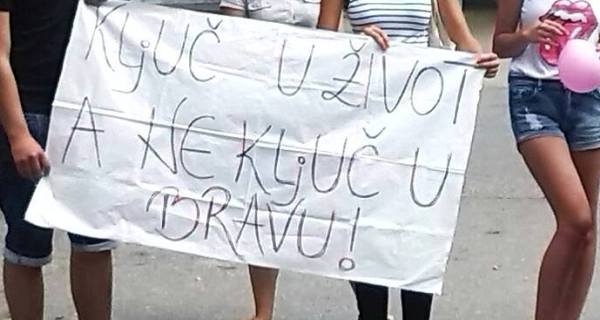 KLJUČ U ŽIVOT
A NE KLJUČ U
BRAVU!